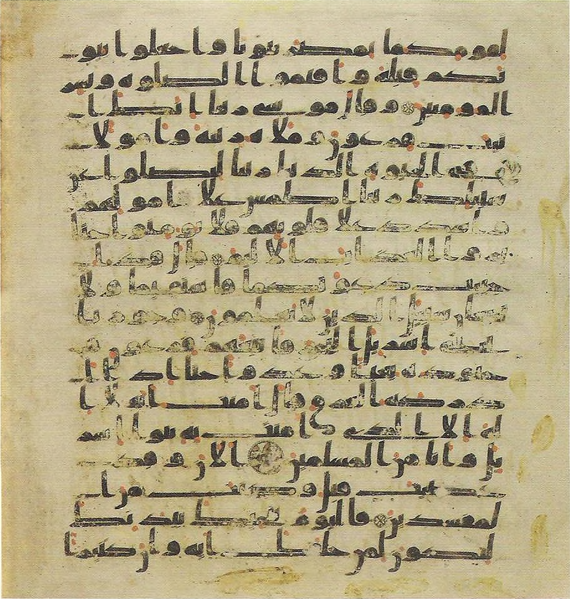 لقومكما بمصر بيوتا واجعلوا بيو
تكم قبلة وأقيموا الصلوة وبشر
المومنين وقال موسى ربنا انك ا
تيت فرعون وملاه زينة وامولا
في الحيوة الدنيا ربنا ليضلوا عن
سبيلك ربنا اطمس على امولهم
واشدد على قلوبهم فلا يومنوا حتى
يروا العذاب الاليم قال قد ا
جيبت دعوتكما فاستقيما ولا
تتبعان سبيل الذين لا يعلمون وجوزنا
ببني اسريل البحر فاتبعهم فرعون و
جنوده بغيا وعدوا حتى اذا ا
دركه الغرق قال امنت انه لا ا
له الا الذي امنت به بنوا اسر
يل وانا من المسلمين الان وقد
عصيت قبل وكنت من ا
لمفسدين فاليوم ننجيك ببدنك
لتكون لمن خلفك اية وان كثيرا